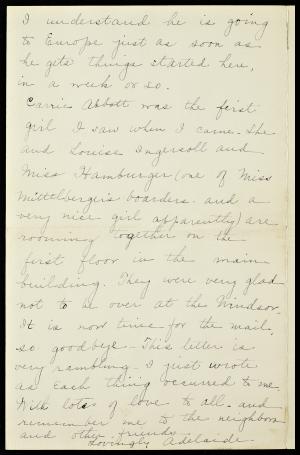 I understand he is going
to Europe just as soon as
he gets things started here,
in a week or so.
Carrie Abbott was the first
girl I saw when I came. She
and Louise Ingersoll and
Miss Hamburger (one of Miss
Mittelberger's boarders and a
very nice girl apparently) are
rooming together on the
first floor in the main
building. They were very glad
not to be over at the Windsor.
It is now time for the mail,
so goodbye - This letter is
very rambling - I just wrote
as each thing occurred to me.
With lots of love to all - and
remember me to the neighbors
and other friends
Lovingly Adelaide